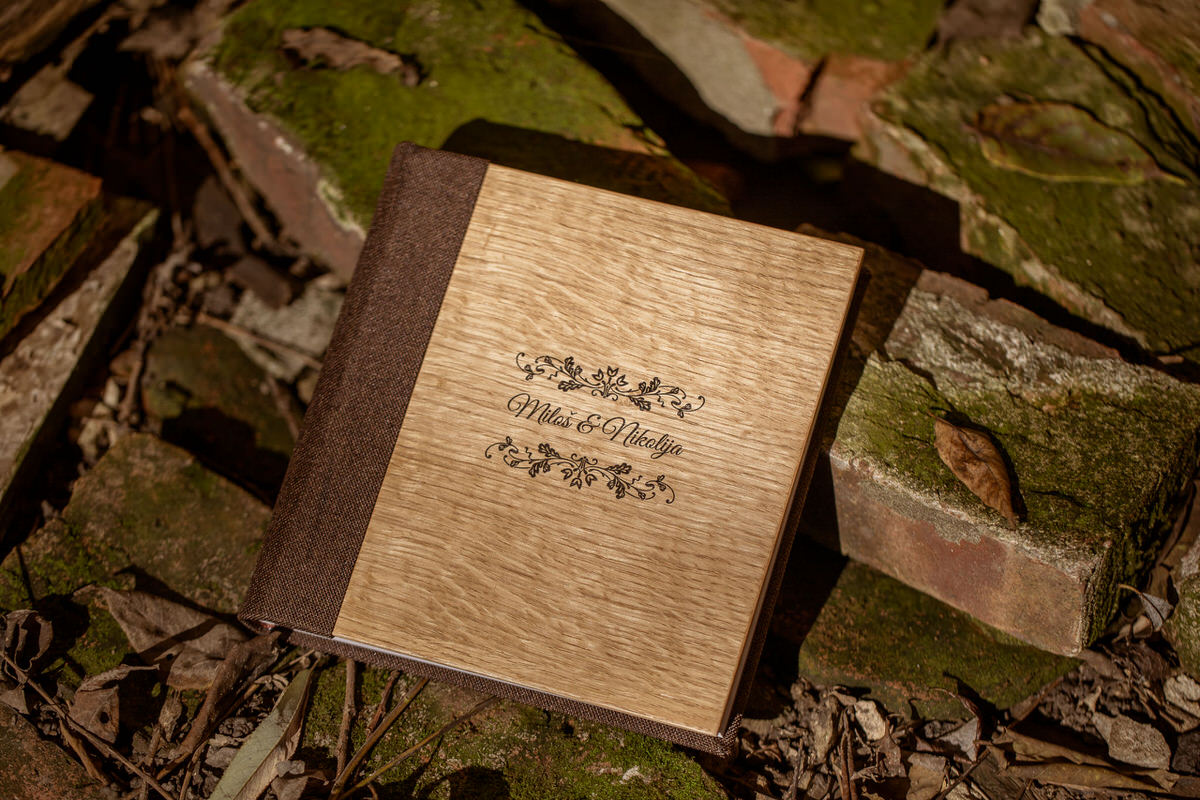 Miloš & Nikolija